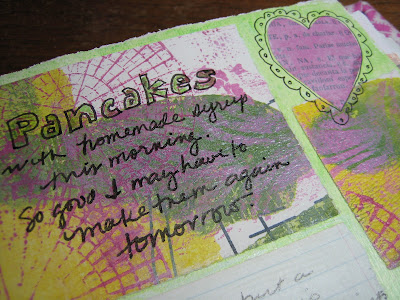 Pancakes
with homemade syrup
this morning.
So good I may have to
make them again
tomorrow.
but a